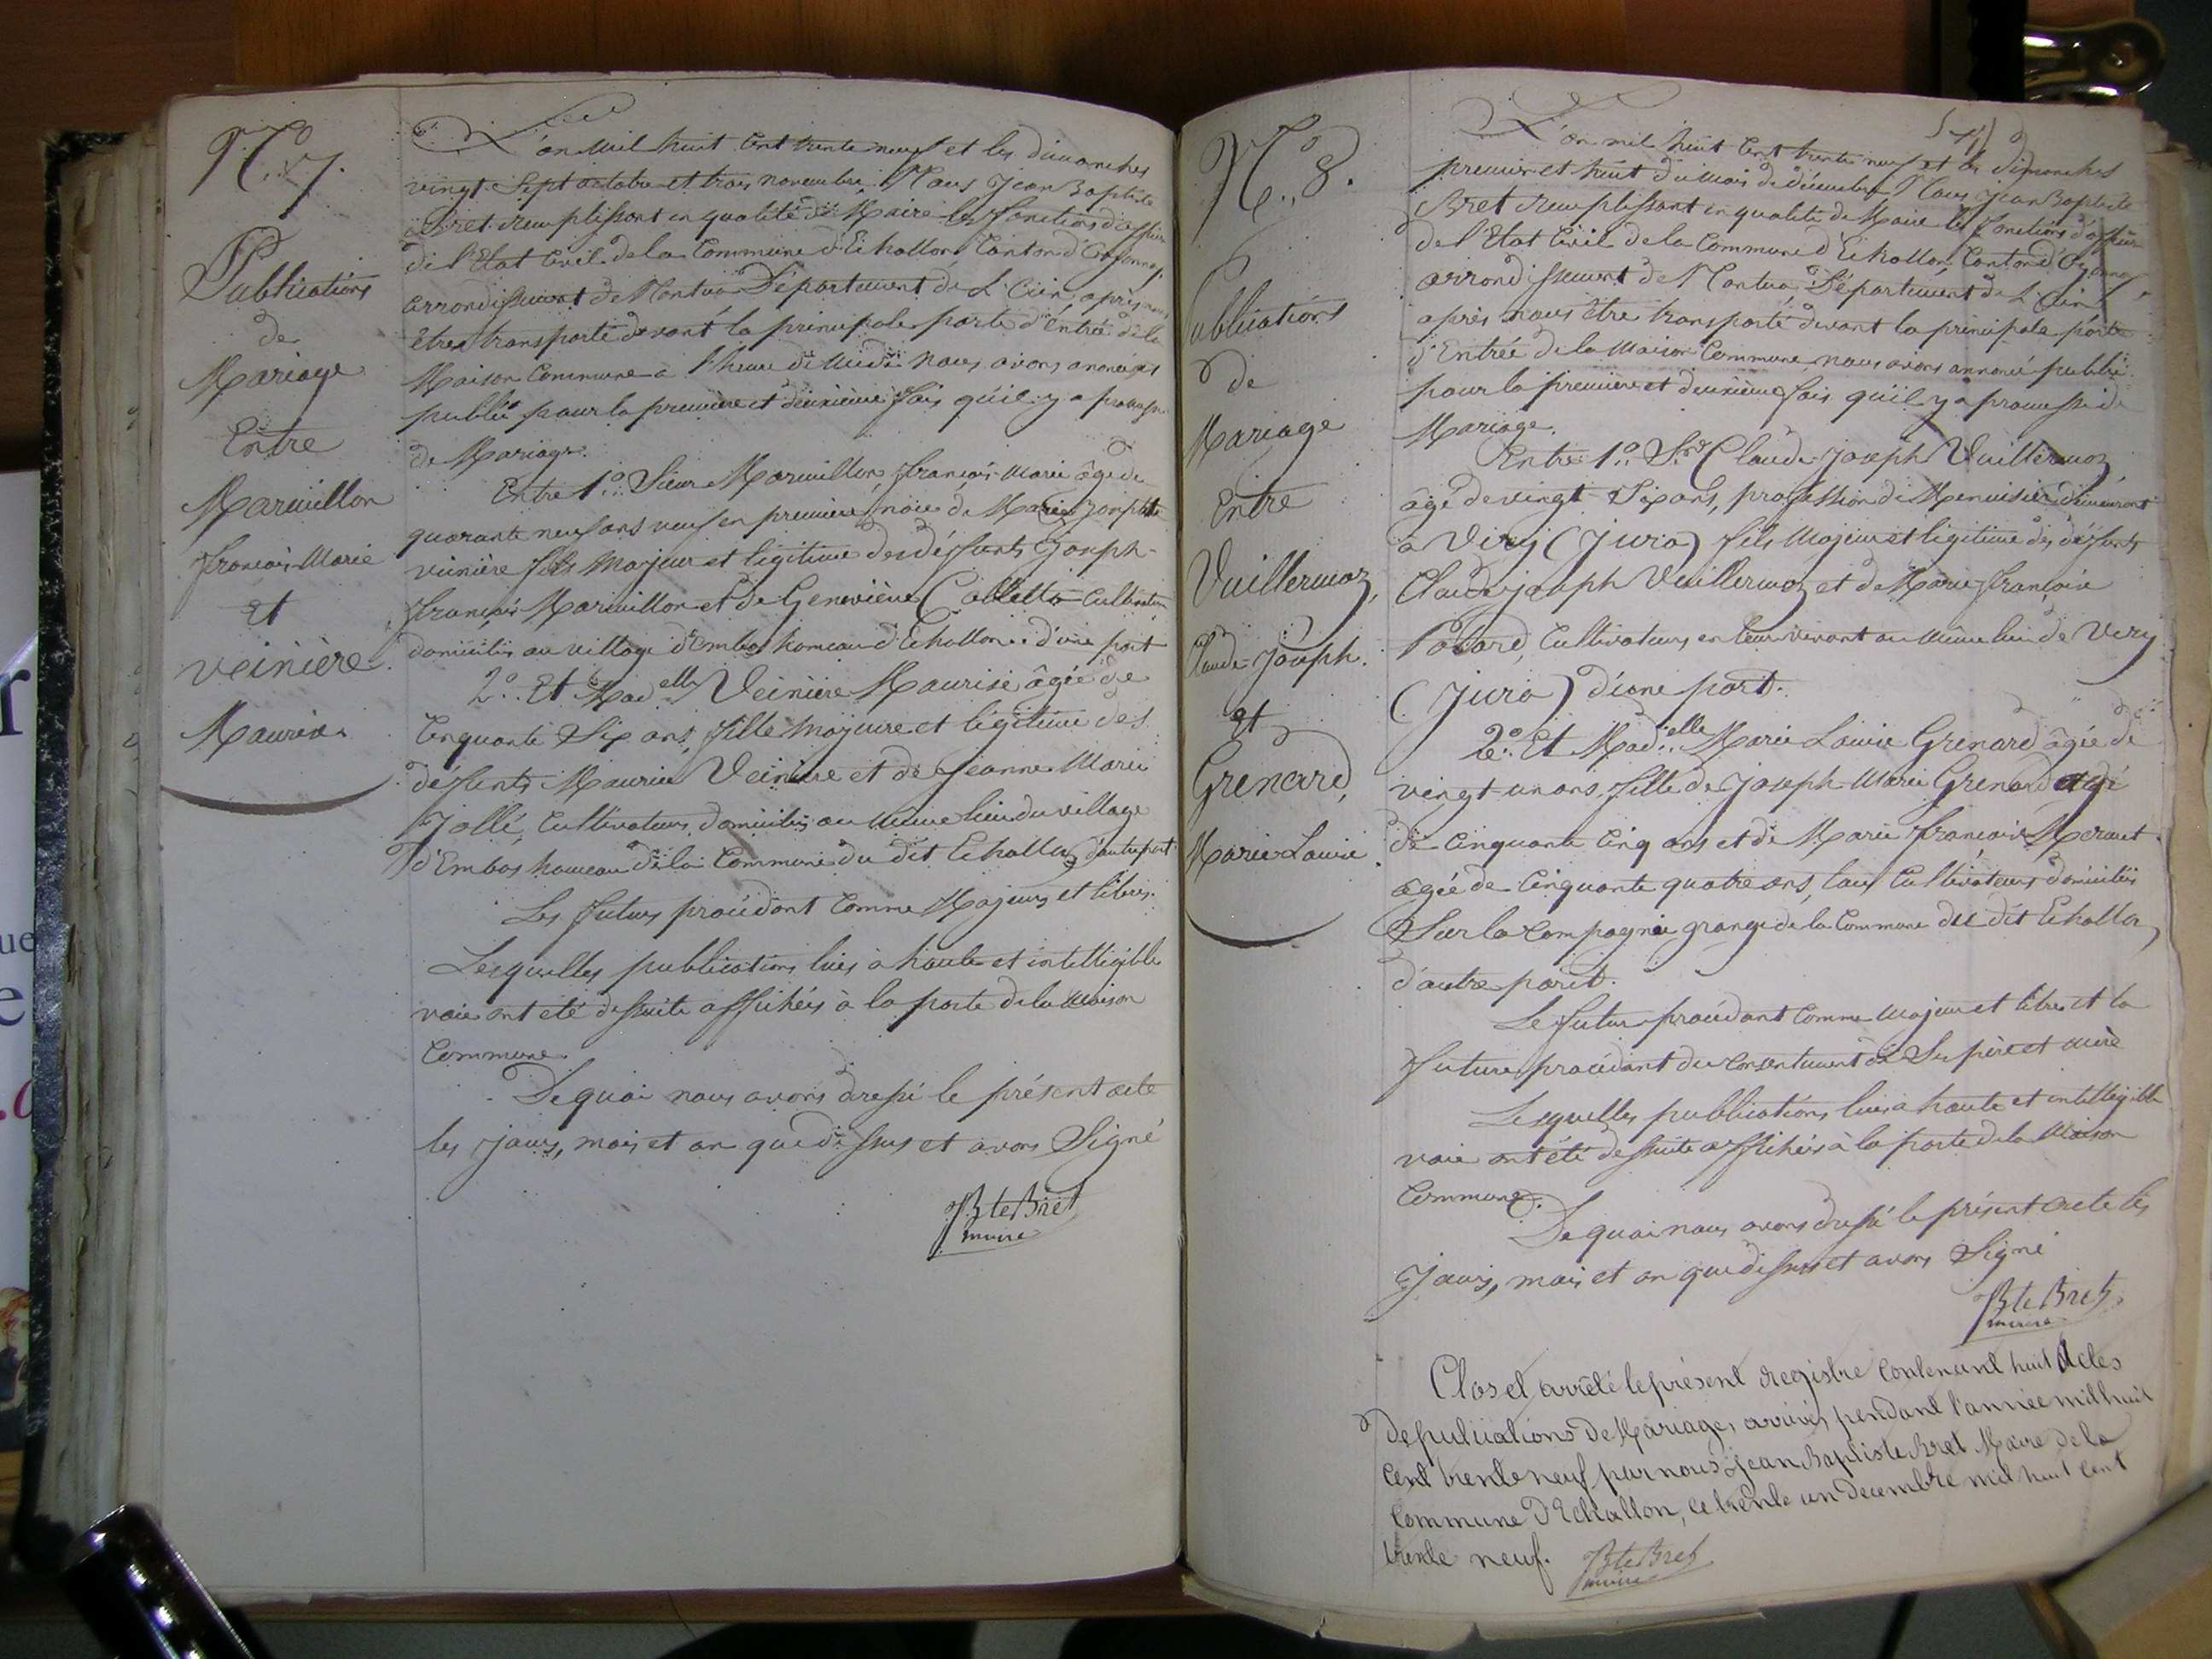 N.° 7.
Publications
de
Mariage
Entre
Marmillon
françois Marie
et
veinière
Maurise
L'an mil huit cent trente neuf et les dimanches
vingt Sept octobre et trois novembre Nous Jean Baptiste
Bret remplissant en qualité de Maire les fonctions d'officier
de l'Etat Civil de la Commune d'Echallon Canton d'Oyonnax
arrondissement de Nantua Département de L'Ain, après nous
être transporté devant la principale porte d'entrée de la
Maison Commune à l'heure de midi nous avons annoncé et
publié pour la première et deuxième fois qu'il y a promesse
de Mariage.
Entre 1.° Sieur Marmillon, françois Marie âgé de
quarante neuf ans veuf en première noce de Marie Josephte
veinière fils Majeur et légitime des défunts Joseph-
françois Marmillon et de Geneviève Colletta Cultivateurs
domiciliés au village d'Embos hameau d'Echallon d'une part
2.° Et Mad.elle Veinière Maurise âgée de
Cinquante Six ans, fille majeure et légitime des
défunts Maurice Veinière et de Jeanne Marie
Jollé, Cultivateurs domiciliés au même lieu du village
d'Embos hameau de la Commune du dit Echallon d'autre part
Les futurs procédant Comme Majeurs et libres.
Lesquelles publications lues à haute et intelligible
voie ont été dessuite affichées à la porte de la Maison
Commune.
De quoi nous avons dressé le présent acte
les jours, mois et an que dessus et avons Signé
Bte Bret
maire
N.° 8.
Publications
de
Mariage
Entre
Vuillermoz,
Claude Joseph.
et
Grenard,
Marie Louise
L'an mil huit Cent trente neuf et les Dimanches
premier et huit du mois de décembre Nous Jean Baptiste
Bret remplissant en qualité de Maire les fonctions d'officier
de l'Etat Civil de la Commune d'Echallon, Canton d'Oyonnax,
arrondissement de Nantua Département de L'Ain
après nous être transporté devant la principale porte
d'Entrée de la Maison Commune, nous avons annoncé publié
pour la première et deuxième fois qu'il y a promesse de
Mariage.
Entre 1.° Sr Claude-Joseph Vuillermoz,
âgé de vingt Six ans, profession de Menuisier demeurant
à Viry (Jura) fils Majeur et légitime des défunts
Claude Joseph Vuillermoz et de Marie françoise
Cultivateurs en leur vivant au même lieu de Viry
(Jura) d'une part.
2.° Et Mad.elle Marie Louise Grenard âgée de
vingt-un ans fille de Joseph-Marie Grenard âgé
de Cinquante Cinq ans et de Marie françoise Mermet
âgée de Cinquante quatre ans, tous Cultivateurs domiciliés
Sur la Compagnie grange de la Commune du dit Echallon,
d'autre part.
Le futur procédant Comme Majeur et libre et la
future procédant du Consentement de Ses père et mère
Lesquelles publications lues à haute et intelligible
voie ont été dessuite affichées à la porte de la Maison
Commune.
De quoi nous avons dressé le présent acte les
Jours, mois et an que dessus et avons Signé
Bte Bret
maire
Clos et arrêté le présent registre contenant huit Actes
de publications de Mariages arrivés pendant l'année mil huit
Cent trente neuf par nous Jean Baptiste Bret Maire de la
Commune d'Echallon, ce trente un decembre mil huit cent
trente neuf. Bte Bret
maire